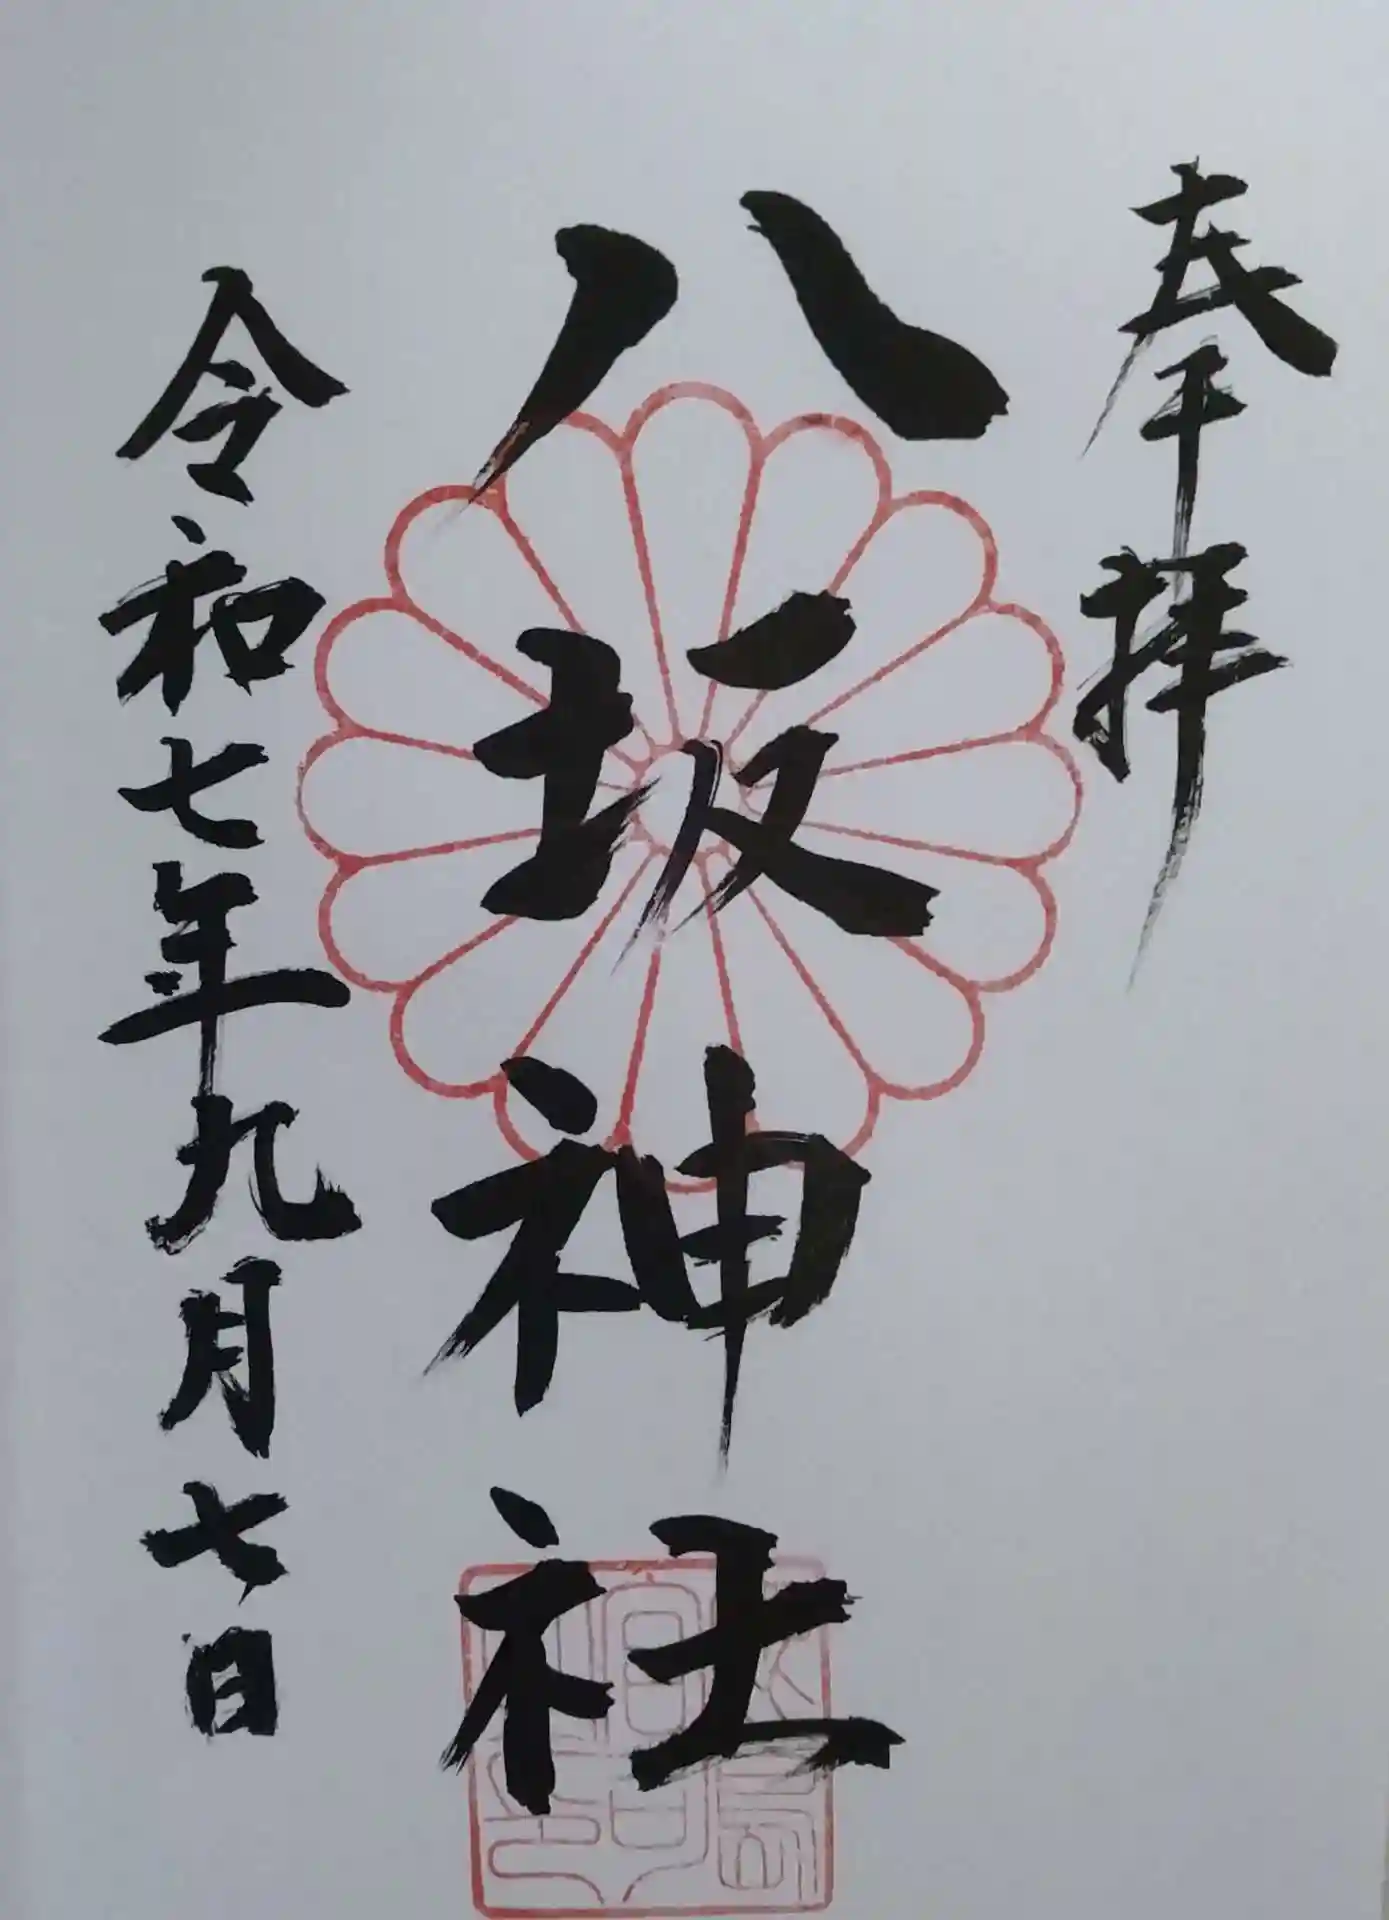 奉拝
八坂神社
令和七年九月七日